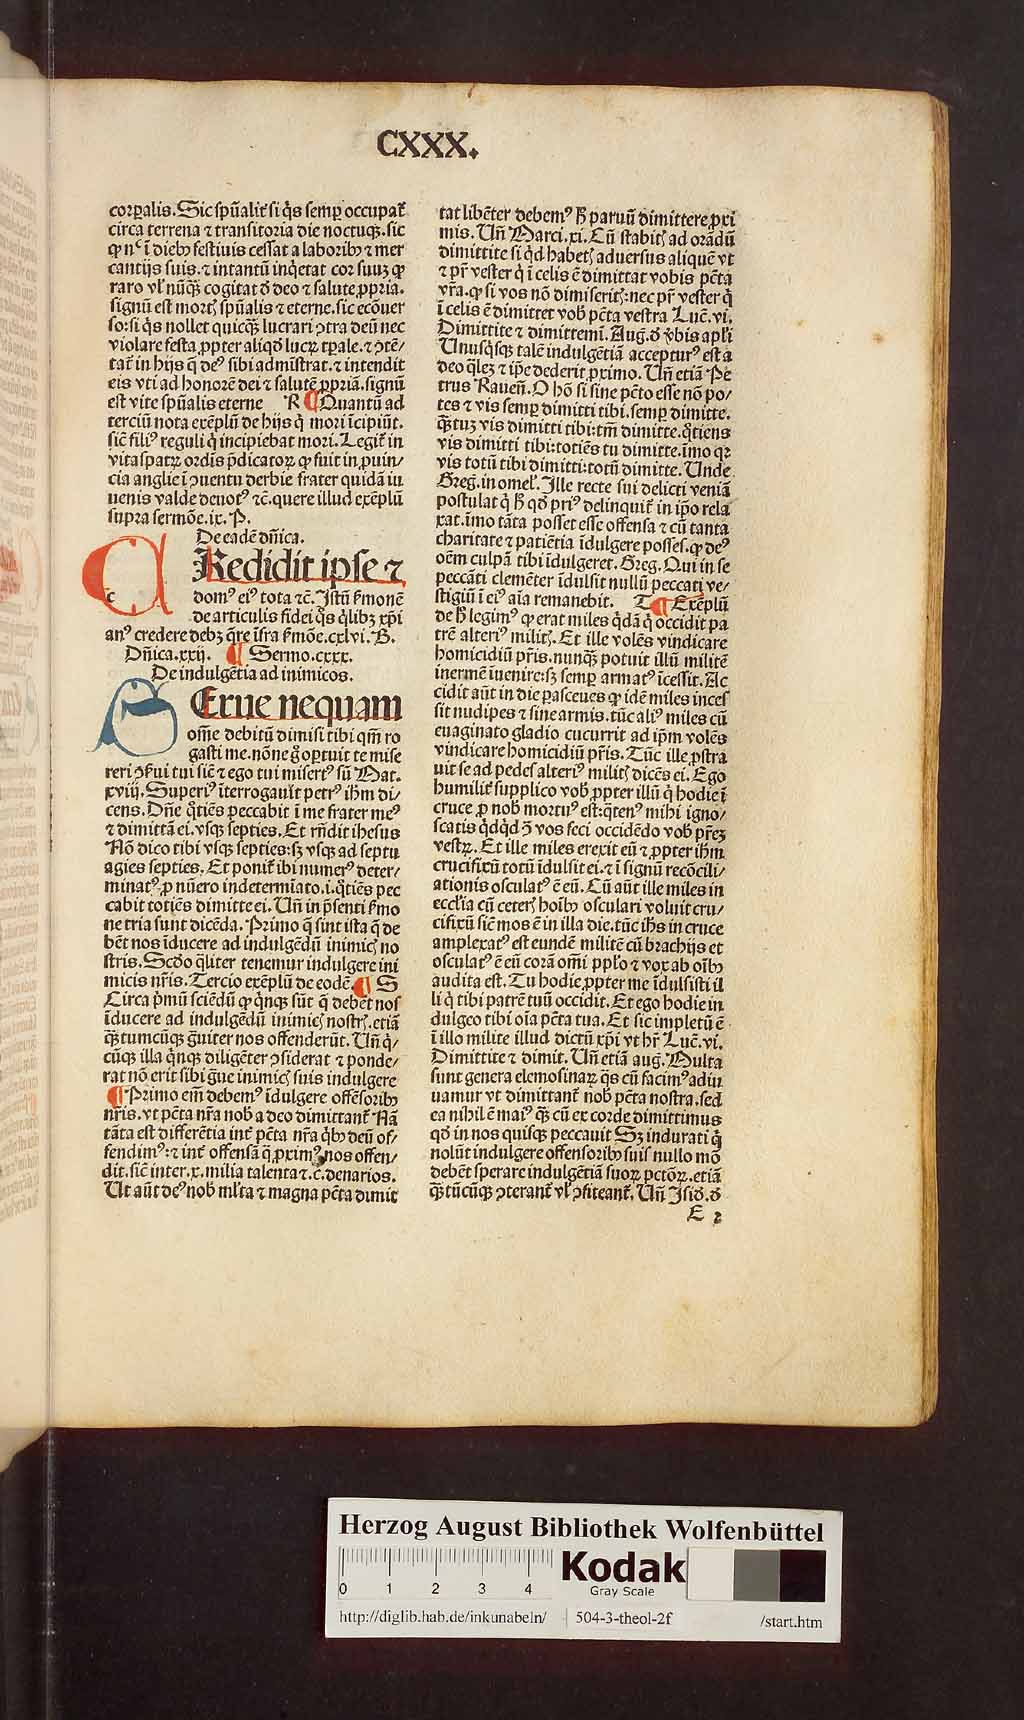 CXXX.
corꝑalis. Sic spũalit̃ si q̇s semꝑ occupat̃
circa terrena ⁊ transitoria die noctuqꝫ. sic
ꝙ nᶜ ĩ dieb⁹ festiuis cessat a laborib⁹ ⁊ mer
cantijs suis. ⁊ intantũ inq̇etat cor suuꝫ ꝙ
raro vl̃ nũqꝫ̃ cogitat ð deo ⁊ salute ꝓpria.
signũ est mort̃ spũalis ⁊ eterne. sic ecõuer
so: si q̇s nollet quicqꝫ̃ lucrari ꝯtra deũ nec
violare festa ꝓpter aliqð lucꝝ tꝑale. ⁊ ꝯtẽ/
tat̃ in hijs q̃ de⁹ sibi admĩstrat. ⁊ intendit
eis vti ad honorẽ dei ⁊ salutẽ ꝓpriã. signũ
est vite spũalis eterne R ¶ Quantũ ad
terciũ nota exẽplũ de hijs q̇ mori ĩcipiũt.
sic̃ fili⁹ reguli q̇ incipiebat mori. Legit̃ in
vitaspatꝝ ordĩs p̃dicatoꝝ ꝙ fuit in ꝓuin/
cia anglie ĩ ꝯuentu derbie frater quidã iu
uenis valde deuot⁹ ⁊c̃. quere illud exẽplũ
supra sermõe. ix. P.
De eadẽ dñica.
CRedidit ipse ⁊
dom⁹ ei⁹ tota ⁊c̃. Istũ ẜmonẽ
de articulis fidei q̇s q̇libꝫ xp̃i
an⁹ credere debꝫ q̃re ĩfra ẜmõe. cxlvi. B.
Dñica. xxij. ¶ Sermo. cxxx.
De indulgẽtia ad inimicos.
SErue nequam
om̃e debitũ dimisi tibi qm̃ ro
gasti me. nõne g̊ oꝑtuit te mise
reri ꝯẜui tui sic̃ ⁊ ego tui misert⁹ sũ Mat.
xviij. Superi⁹ ĩterrogauit petr⁹ ihm̃ di/
cens. Dñe q̇tiẽs peccabit ĩ me frater me⁹
⁊ dimittã ei. vsqꝫ septies. Et rñdit ihesus
Nõ dico tibi vsqꝫ septies: sꝫ vsqꝫ ad septu
agies septies. Et ponit̃ ibi numer⁹ deter/
minat⁹ ꝓ nũero indetermĩato. i. q̇tiẽs pec
cabit totiẽs dimitte ei. Uñ in p̃senti ẜmo
ne tria sunt dicẽda. Primo q̃ sint ista q̃ de
bẽt nos ĩducere ad indulgẽdũ inimic̃ no
stris. Scðo q̃liter tenemur indulgere ini
micis nr̃is. Tercio exẽplũ de eodẽ. ¶ S
Circa p̃mũ sciẽdũ ꝙ q̇nqꝫ sũt q̃ debẽt nos
ĩducere ad indulgẽdũ inimic̃ nostr̃. etiã
qꝫ̃tumcũqꝫ g̃uiter nos offenderũt. Uñ q̇/
cũqꝫ illa q̇nqꝫ diligẽter ꝯsiderat ⁊ ponde/
rat nõ erit sibi g̃ue inimic̃ suis indulgere
¶ Primo em̃ debem⁹ ĩdulgere offẽsorib⁹
nr̃is. vt pct̃a nr̃a nob̃ a deo dimittant̃ Nã
tãta est differẽtia int̃ pct̃a nr̃a q̇b⁹ deũ of/
fendim⁹: ⁊ int̃ offensã q̃ ꝓxim⁹ nos offen/
dit. sic̃ inter. x. milia talenta ⁊. c. denarios.
Ut aũt de⁹ nob̃ ml̃ta ⁊ magna pct̃a dimit
tat libẽter debem⁹ h̃ paruũ dimittere ꝓxi
mis. Uñ Marci. xi. Cũ stabit̃ ad orãdũ
dimittite si q̇d habet̃ aduersus aliquẽ vt
⁊ pr̃ vester q̇ ĩ celis ẽ dimittat vobis pct̃a
vr̃a. ꝙ si vos nõ dimiserit̃: nec pr̃ vester q̇
ĩ celis ẽ dimittet vob̃ pct̃a vestra Luc̃. vi.
Dimittite ⁊ dimittemĩ. Aug. ð v̾bis apl̃i
Unusq̇sqꝫ talẽ indulgẽtiã acceptur⁹ est a
deo q̃leꝫ ⁊ ip̃e dederit ꝓximo. Uñ etiã Pe
trus Rauen̄. O hõ si sine pct̃o esse nõ po/
tes ⁊ vis semꝑ dimitti tibi. semꝑ dimitte.
qꝫ̃tuꝫ vis dimitti tibi: tm̃ dimitte. q̇tiens
vis dimitti tibi: totiẽs tu dimitte. imo qꝛ
vis totũ tibi dimitti: totũ dimitte. Unde
Greg̃. in omel̃. Ille recte sui delicti veniã
postulat q̇ h̃ qð pri⁹ delinquit̃ in ip̃o rela
xat. imo tãta posset esse offensa ⁊ cũ tanta
charitate ⁊ patiẽtia ĩdulgere posses. ꝙ de⁹
oẽm culpã tibi ĩdulgeret. Greg. Qui in se
peccãti clemẽter ĩdulsit nullũ peccati ve/
stigiũ ĩ ei⁹ aĩa remanebit. T ¶ Exẽplũ
de h̃ legim⁹ ꝙ erat miles q̇dã q̇ occidit pa
trẽ alteri⁹ milit̃. Et ille volẽs vindicare
homicidiũ pr̃is. nunqꝫ̃ potuit illũ militẽ
inermẽ iuenire: sꝫ semꝑ armat⁹ ĩcessit. Ac
cidit aũt in die parasceues ꝙ idẽ miles inces
sit nudipes ⁊ sine armis. tũc ali⁹ miles cũ
euaginato gladio cucurrit ad ip̃m volẽs
vindicare homicidiũ pr̃is. Tũc ille ꝓstra
uit se ad pedes alteri⁹ milit̃ dicẽs ei. Ego
humilit̃ supplico vob̃ ꝓpter illũ q̇ hodie ĩ
cruce ꝓ nob̃ mortu⁹ est: q̃ten⁹ mihi igno/
scatis q̇dq̇d ꝯ̃ vos feci occidẽdo vob̃ pr̃eꝫ
vestꝝ. Et ille miles erexit eũ ⁊ ꝓpter ihm̃
crucifixũ totũ ĩdulsit ei. ⁊ ĩ signũ recõcili/
ationis osculat⁹ ẽ eũ. Cũ aũt ille miles in
eccl̃ia cũ ceter̃ hoĩb⁹ osculari voluit cru/
cifixũ sic̃ mos ẽ in illa die. tũc ih̃s in cruce
amplexat⁹ est eundẽ militẽ cũ brachijs et
osculat⁹ ẽ eũ corã om̃i ppl̃o ⁊ vox ab oĩb⁹
audita est. Tu hodie ꝓpter me ĩdulsisti il
li q̇ tibi patrẽ tuũ occidit. Et ego hodie in
dulgeo tibi oĩa pct̃a tua. Et sic impletũ ẽ
ĩ illo milite illud dictũ xp̃i vt hr̃ Luc̃. vi.
Dimittite ⁊ dimit. Uñ etiã aug̃. Multa
sunt genera elemosinaꝝ q̇s cũ facim⁹ adiu
uamur vt dimittant̃ nob̃ pct̃a nostra. sed
ea nihil ẽ mai⁹ qꝫ̃ cũ ex corde dimittimus
qð in nos quisqꝫ peccauit Sꝫ indurati q̇
nolũt indulgere offensorib⁹ suis nullo mõ
debẽt sperare indulgẽtiã suoꝝ pct̃oꝝ. etiã
qꝫ̃tũcũqꝫ ꝯterant̃ vl̃ ꝯfiteant̃. Uñ Isið. ð
E 2
Herzog August Bibliothek Wolfenbüttel
0 1 2 3 4
Kodak
Gray Scale
http://diglib.hab.de/inkunabeln/ 504-3-theol-2f /start.htm